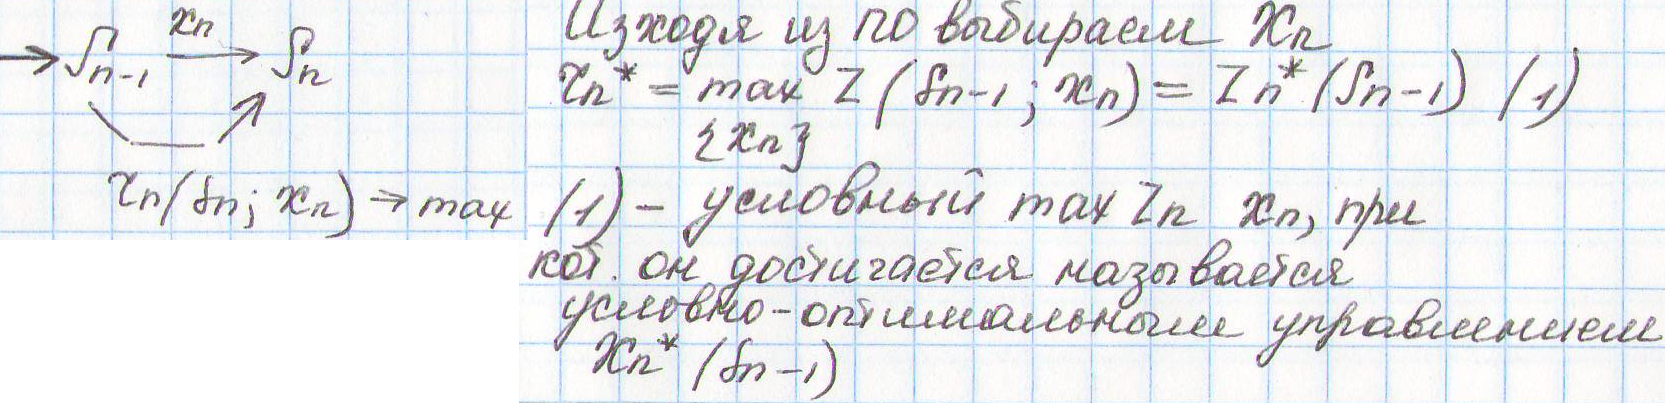 → S_{n-1} —x_n→ S_n
Z_n(S_n; x_n) → max
Исходя из ПО выбираем x_n
Z_n* = max Z(S_{n-1}; x_n) = Z_n*(S_{n-1}) (1)
{x_n}
(1) – условный max Z_n x_n, при
кот. он достигается называется
условно-оптимальным управлением
x_n*(S_{n-1})